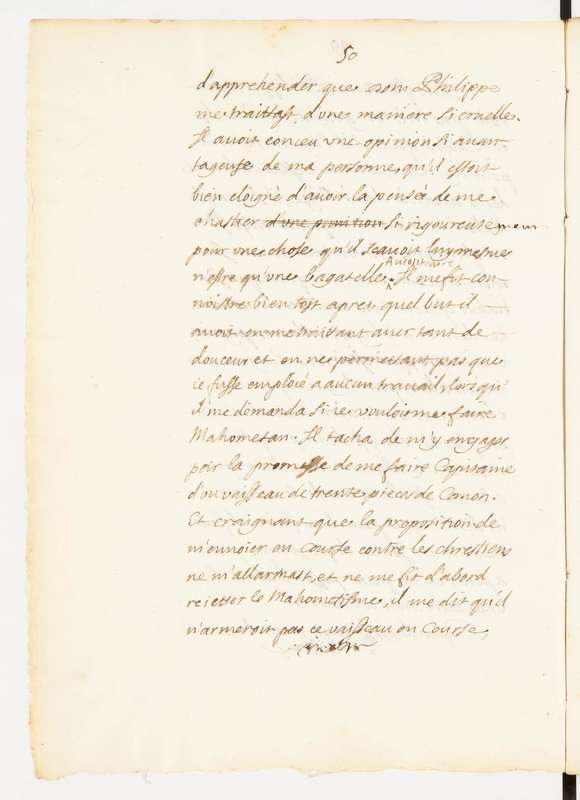 50
d'apprehender que dom Philippe
me traittast d'une maniere si cruelle.
Il auoit conceu vne opinion si auan-
tageuse de ma personne, qu'il estoit
bien eloigné d'auoir la pensée de me
chastier d'une punition si rigoureusement
pour vne chose qu'il scauoit luy mesme
n'estre qu'vne bagatelle. Il me fit con-
noistre bien tost apres quel but il
auoit en me traittant auec tant de
douceur et en ne permettant pas que
ie fusse emploié a aucun trauail, lors qu'
il me demanda si ie voulois me faire
Mahometan. Il tacha de m'y engager
par la promesse de me faire Capitaine
d'vn vaisseau de trente pieces de Canon.
Et craignant que la proposition de
m'enuoier en Course contre les chrestiens
ne m'allarmast, et ne me fit d'abord
reietter le Mahometisme, il me dit qu'il
n'armeroit pas ce vaisseau en Course,